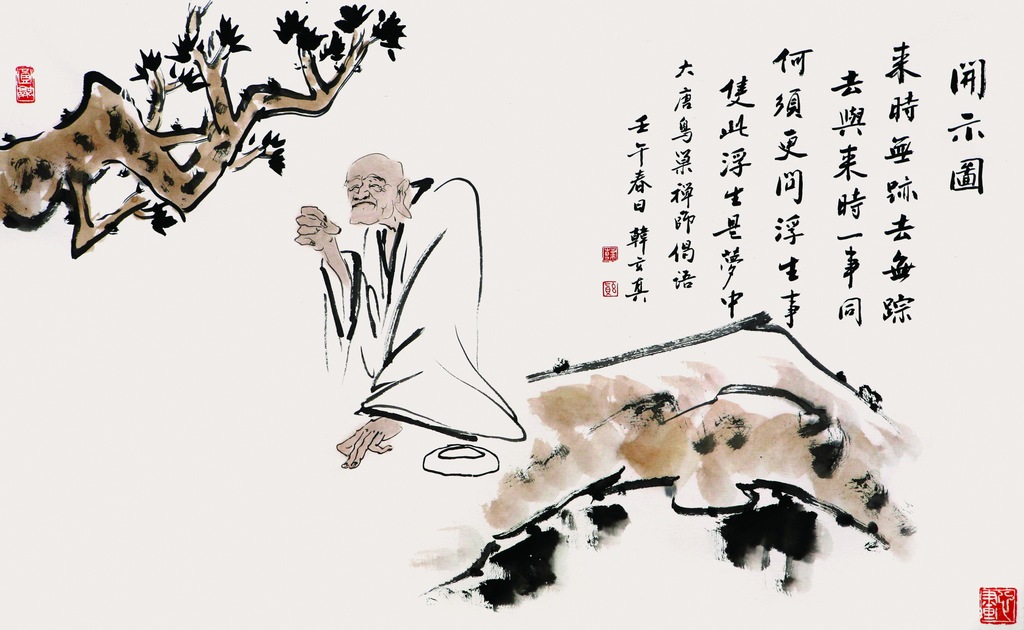 開示圖
来時無跡去無踪
去與来時一事同
何須更问浮生事
隻此浮生是夢中
大唐鸟巢禅師偈語
壬午春日 韓玄真